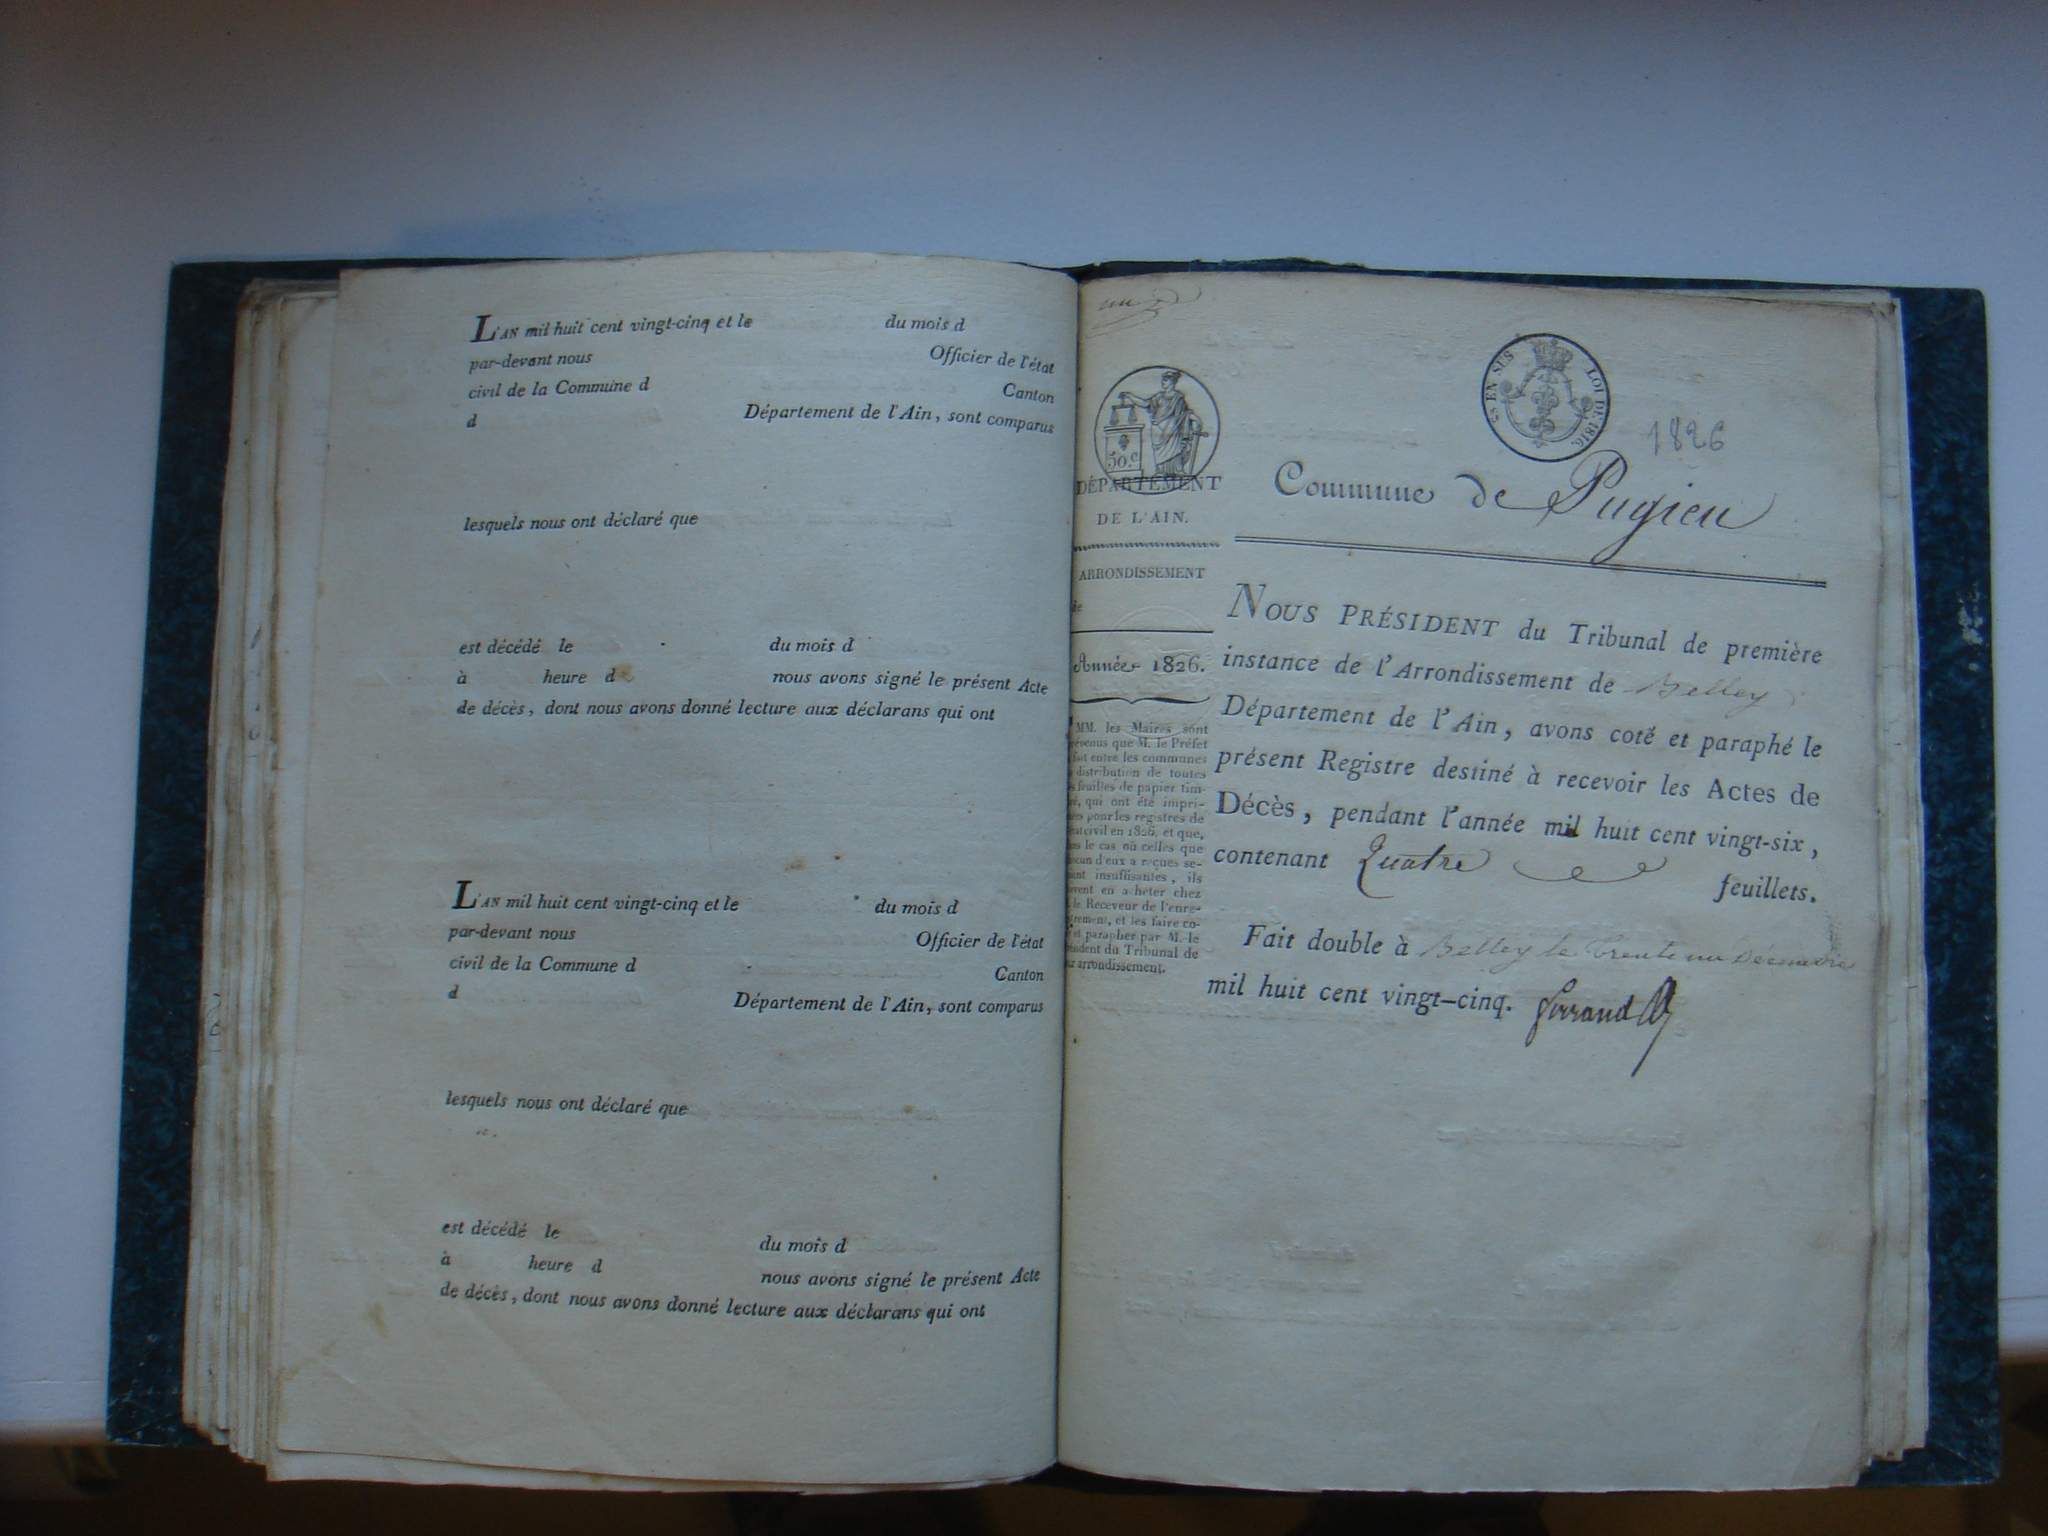 L'AN mil huit cent vingt-cinq et le du mois d
par-devant nous Officier de l'état
civil de la Commune d Canton
d Département de l'Ain, sont comparus
lesquels nous ont déclaré que
est décédé le du mois d
à heure d nous avons signé le présent Acte
de décès, dont nous avons donné lecture aux déclarans qui ont
L'AN mil huit cent vingt-cinq et le du mois d
par-devant nous Officier de l'état
civil de la Commune d Canton
d Département de l'Ain, sont comparus
lesquels nous ont déclaré que
est décédé le du mois d
à heure d nous avons signé le présent Acte
de décès, dont nous avons donné lecture aux déclarans qui ont
50.c
DÉPARTEMENT
DE L'AIN.
ARRONDISSEMENT
de
Année 1826.
MM. les Maires sont
que M. le Préfet
fait entre les communes
distribution de toutes
feuilles de papier tim-
qui ont été impri-
pour les registres de
civil en 1826, et que,
le cas où celles que
d'eux a reçues se-
insuffisantes, ils
en acheter chez
le Receveur de l'enre-
et les faire co-
et parapher par M. le
du Tribunal de
arrondissement.
EN SUS LOI DE 1816.
1826
Commune de Pugieu
NOUS PRÉSIDENT du Tribunal de première
instance de l'Arrondissement de Belley
Département de l'Ain, avons coté et paraphé le
présent Registre destiné à recevoir les Actes de
Décès, pendant l'année mil huit cent vingt-six,
contenant Quatre feuillets.
Fait double à Belley le trente un Decembre
mil huit cent vingt-cinq.